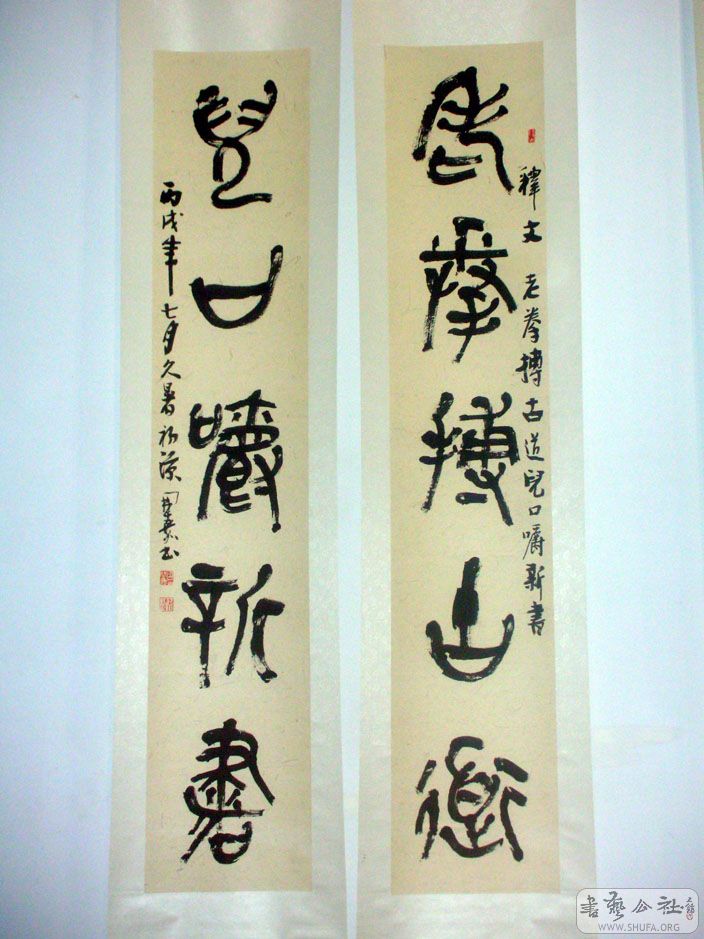 老拳搏古道
釋文 老拳搏古道兒口嚼新書
兒口嚼新書
丙戌年七月久暑初涼
書藝公社
WWW.SHUFA.ORG